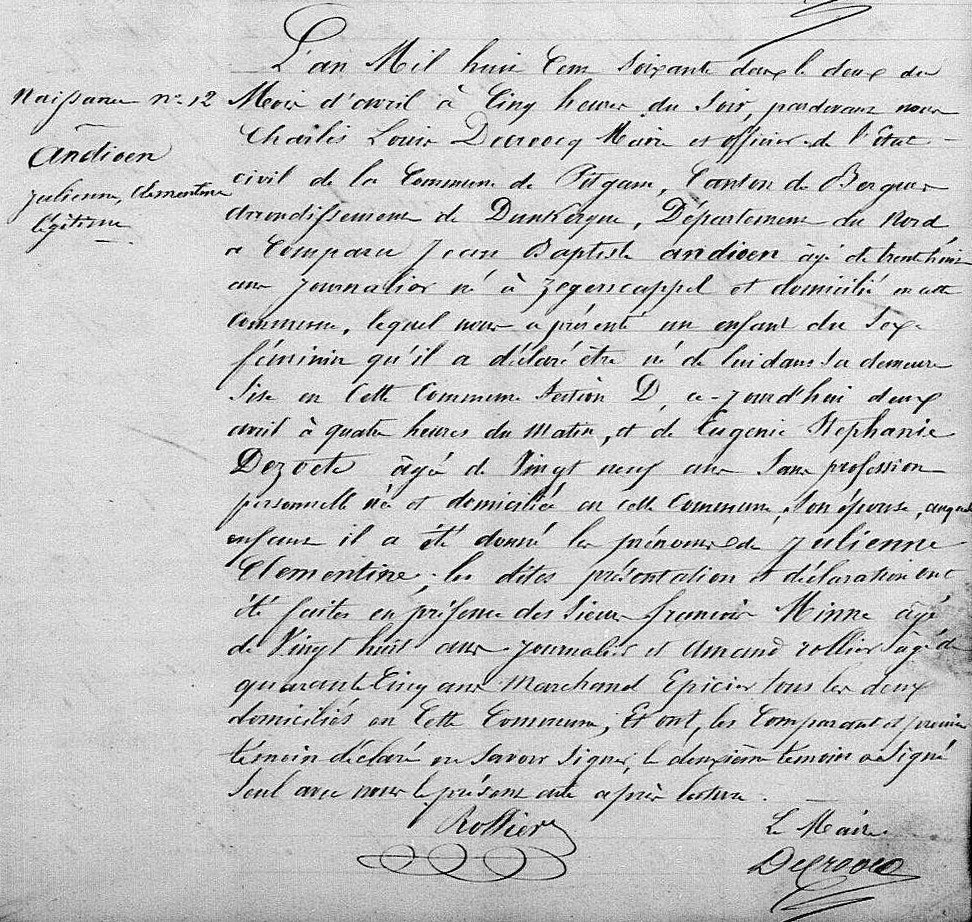 L'an Mil huit Cent Soixante deux le deux du
Naissance n° 12
Mois d'avril à Cinq heures du Soir, pardevant nous
Andioen
Charles Louis Decroocq Maire et officier de l'Etat
Julienne, Clementine
civil de la Commune de Pitgam, Canton de Bergues
légitime
arrondissement de Dunkerque, Département du Nord
a Comparu Jean Baptiste andioen âgé de trente huit
ans Journalier né à Zegerscappel et domicilié en cette
Commune, lequel nous a présenté un enfant du Sexe
féminin qu'il a déclaré être né de lui dans sa demeure
Sise en Cette Commune Section D, ce-jourd'hui deux
avril à quatre heures du matin, et de Eugenie Stephanie
Dezoete âgée de Vingt neuf ans Sans profession
personnelle née et domiciliée en cette Commune, Son épouse, auquel
enfant il a été donné les prénoms de Julienne
Clementine; les dites présentation et déclaration ont
été faites en présence des Sieurs françois Minne âgé
de Vingt huit ans Journalier et Amand rollier âgé de
quarante Cinq ans Marchand Epicier tous les deux
domiciliés en Cette Commune, Et ont, les Comparant et premier
témoin déclaré ne Savoir Signer, le deuxième témoin a Signé
Seul avec nous le présent acte après lecture.
Rollier
Le Maire
DeCroocq